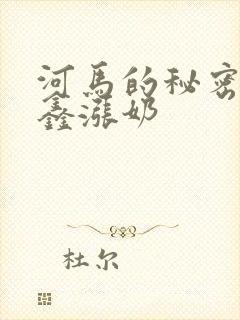 河马的秘密
鑫涨奶
杜尔